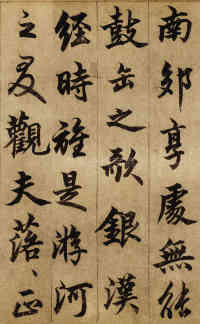 南郊享處無能
鼓缶之歌銀漢
經時旋是游河
之叟觀夫落、正